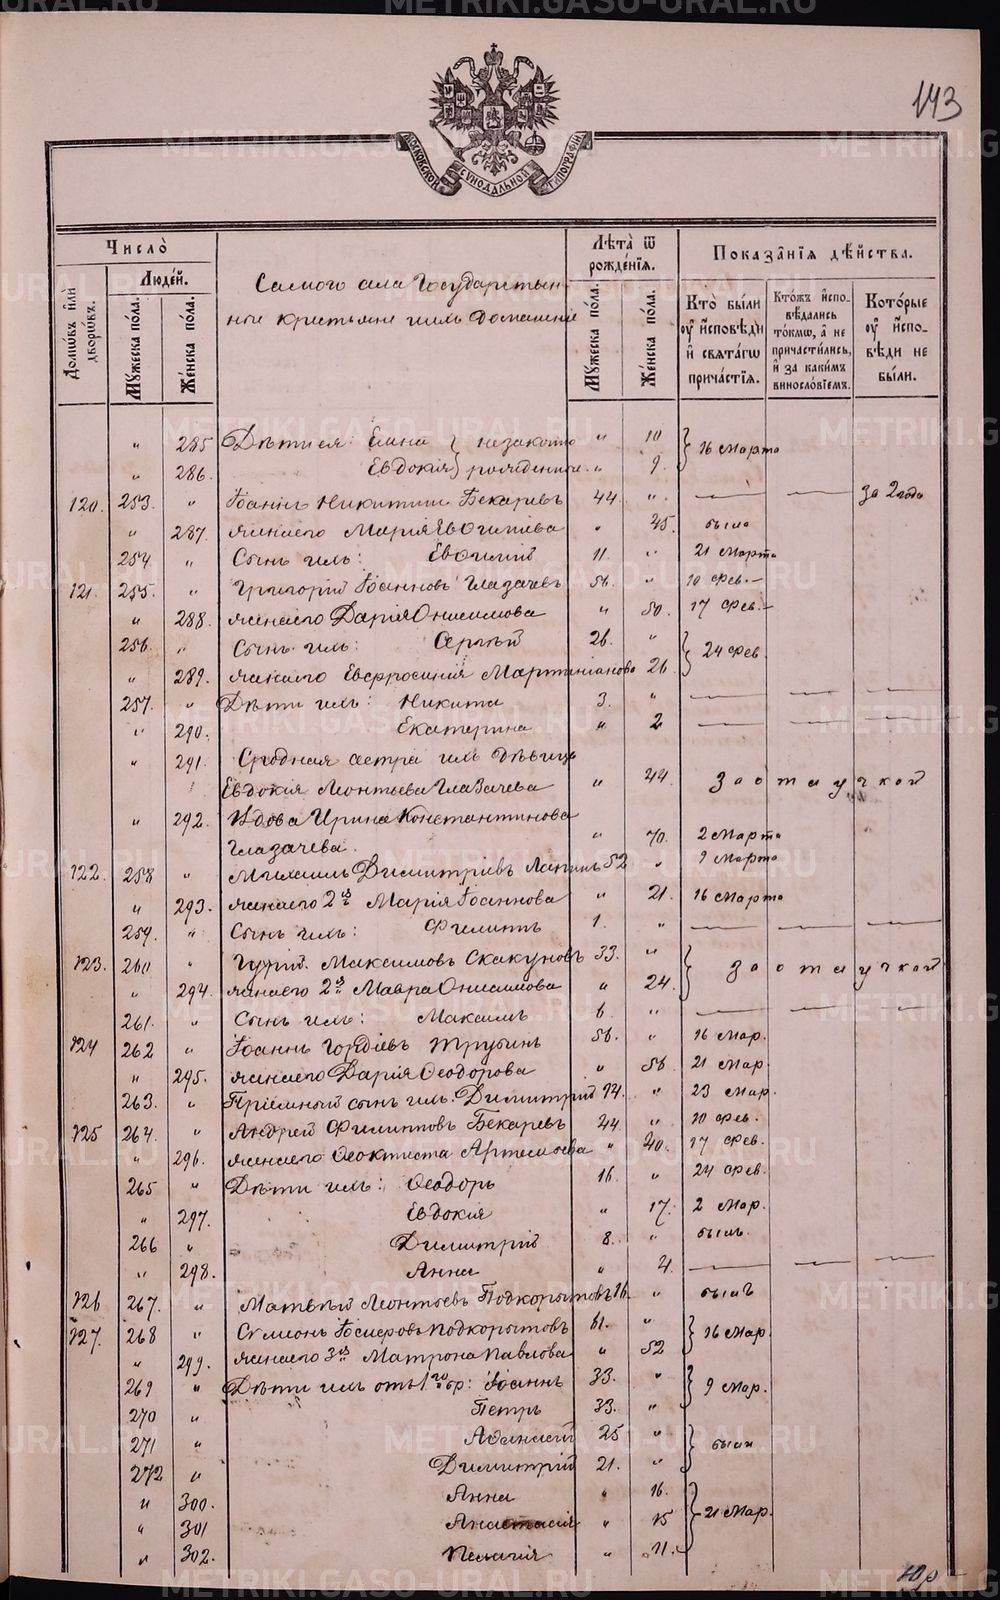 METRIKI.GASO-URAL.RU
143
МОСКОВСКОЙ СѴНОДАЛЬНОЙ ТИПОГРАФІИ
Число
Людей.
Домовъ или дворовъ.
Мужеска пола.
Женска пола.
Самого села Государствен-
ные крестьяне и ихъ домашніе
Лѣта ѿ рожденія.
Мужеска пола.
Женска пола.
Показанія дѣйства.
Кто были у исповѣди и святаго причастія.
Ктожъ исповѣдались токмо, а не причастились, и за какимъ винословіемъ.
Которые у исповѣди не были.
" 285 Дѣти ея: Анна } незаконно " 10 } 16 Марта
" 286. Евдокія } рожденные " 9.
120. 253. " Іоаннъ Никитинъ Бекаревъ 44. " — — за 2 года
" 287. жена его Марія Евѳиміева " 45. была
254 " Сынъ ихъ: Евѳимій 11. " 21 Марта
121. 255. " Григорій Іоанновъ Глазачевъ 56. " 10 Фев.
" 288. жена его Дарія Онисимова " 50. 17 Фев.
256. " Сынъ ихъ: Сергій 26. " } 24 Фев.
" 289. жена его Евфросинія Мартиніанова 26.
257. " Дѣти ихъ: Никита 3. " — — —
" 290. Екатерина " 2 — — —
" 291. Сродная сестра ихъ дѣвица
Евдокія Леонтьева Глазачева " 44 за отлучкой
" 292. Вдова Ирина Константинова
Глазачева. " 70. 2 Марта
122. 258 " Михаилъ Димитріевъ Лапинъ 52 " 9 Марта
" 293. жена его 2й Марія Іоаннова " 21. 16 Марта
259. " Сынъ ихъ: Филиппъ 1. " — — —
123. 260 " Гурій Максимовъ Скакуновъ 33. " } за отлучкой
" 294. жена его 2й Мавра Онисимова " 24.
261. " Сынъ ихъ: Максимъ 6. " — — —
124 262 " Іоаннъ Гордіевъ Трубинъ 56. " 16 Мар.
" 295. жена его Дарія Ѳеодорова " 56 21 Мар.
263. " Пріемный сынъ ихъ: Димитрій 14. " 23 Мар.
125 264. " Андрей Филипповъ Бекаревъ 44. " 10 Фев.
" 296. жена его Ѳеоктиста Артемьева " 40. 17 Фев.
265 " Дѣти ихъ: Ѳеодоръ 16. " 24 Фев.
" 297. Евдокія " 17. 2 Мар.
266 " Димитрій 8. " былъ
" 298. Анна " 4. — — —
126 267. " Матѳей Леонтьевъ Подкорытовъ 16. " былъ
127. 268 " Симеонъ Іосифовъ Подкорытовъ 61. " } 16 Мар.
" 299. жена его 3й Матрона Павлова " 52
269 " Дѣти ихъ отъ 1го бр: Іоаннъ 33. " } 9 Мар.
270 " Петръ 33. "
271 " Аѳанасій 25 " } были
272 " Димитрій 21. "
" 300. Анна " 16. } 21 Мар.
" 301 Анастасія " 15
" 302. Пелагія " 11.